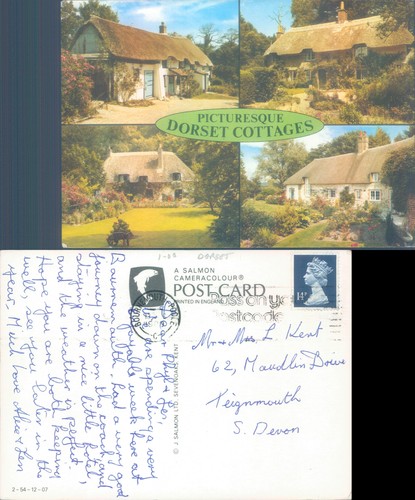 PICTURESQUE
DORSET COTTAGES
1-00 DORSET
A SALMON
CAMERACOLOUR®
POST CARD
PRINTED IN ENGLAND
14P
Pass on your
Postcode
© J SALMON LTD. SEVENOAKS KENT
2-54-12-07
Dear Phyl & Len,
We are spending a very
enjoyable week here at
Bournemouth, had a very good
journey down on the coach and
staying in a nice little hotel
and the weather is perfect.
Hope you are both keeping
well, see you later in the
year, Much Love Alice & Len
Mr & Mrs L. Kent
62, Maudlin Drive
Teignmouth
S. Devon